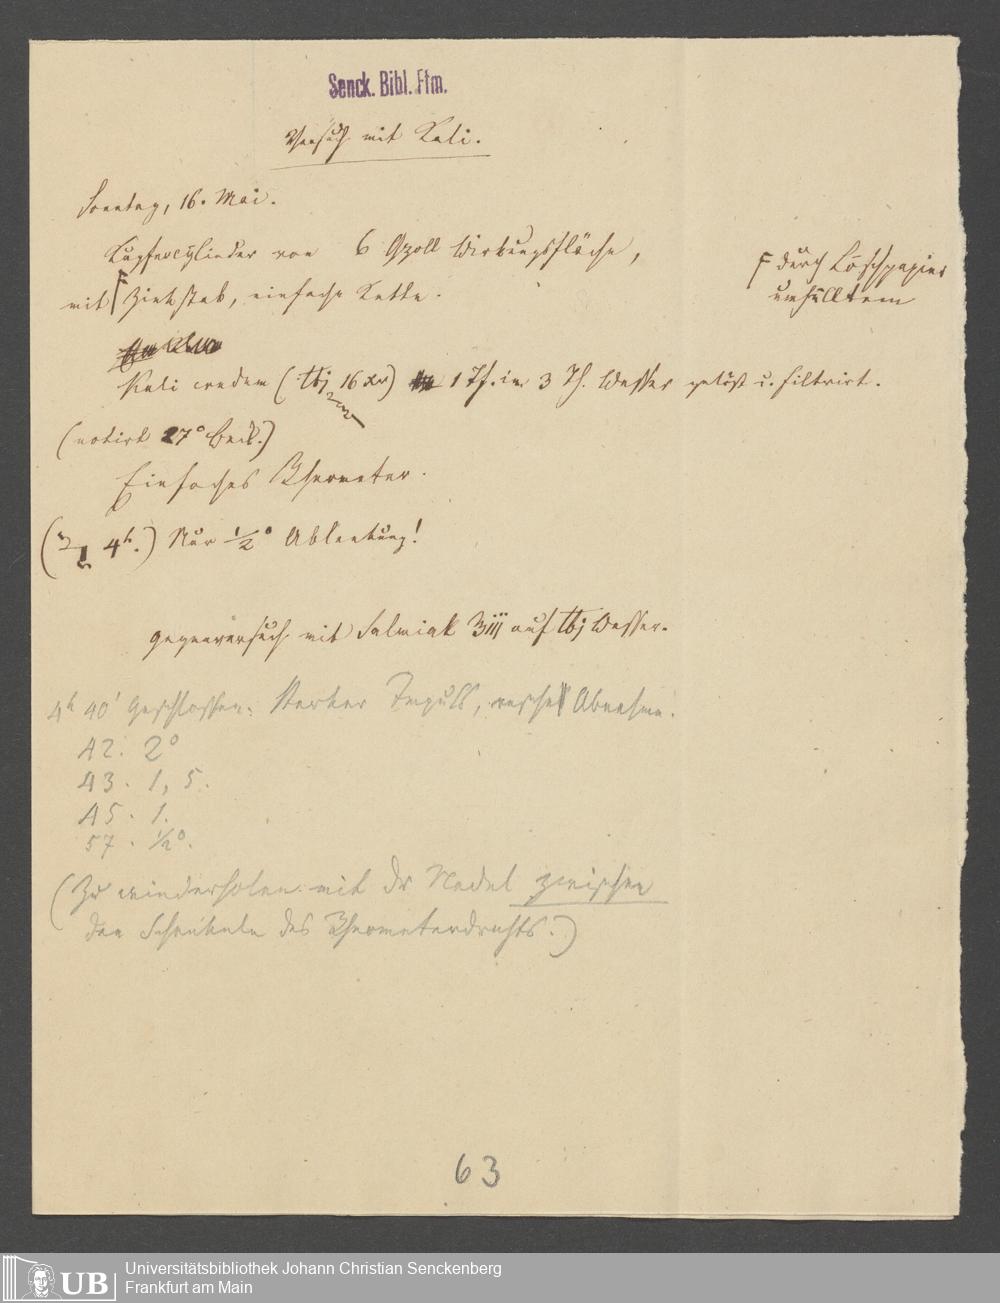 Senck. Bibl. Ffm.
Versuch mit Kali.
Sonntag, 16. Mai.
Kupfercylinder von 6 Qzoll Wirkungsfläche,
mit Zinkstab, einfache Kette.
durch Löschpapier
umhülltem
Kali crudum (℔j 16 xr) 1 Th. in 3 Th. Wasser gelöst u. filtrirt.
(notirt 27° Beck.)
Einfaches Rheometer.
4h.) Nur ½° Ablenkung!
Gegenversuch mit Salmiak ʒiij auf ℔j Wasser.
4h 40' Geschlossen: Starker Impuls, rasche Abnahme.
42. 2°
43. 1,5.
45. 1.
57. ½°.
(Zu wiederholen mit dr Nadel zwischen
den Schenkeln des Rheometerdrahts.)
63
UB
Universitätsbibliothek Johann Christian Senckenberg
Frankfurt am Main